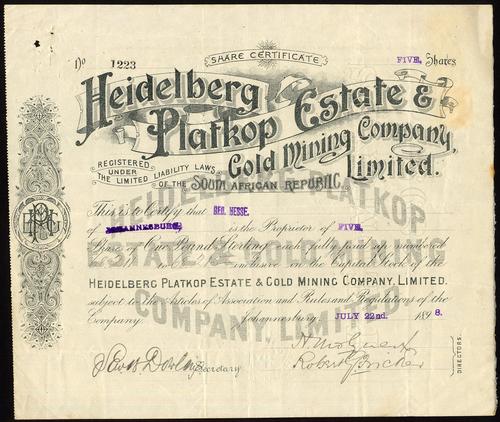 SHARE CERTIFICATE
No 1223 FIVE, Shares
Heidelberg Estate &
Platkop Gold Mining Company,
Limited.
REGISTERED
UNDER
THE LIMITED LIABILITY LAWS
OF THE SOUTH AFRICAN REPUBLIC
This is to Certify that GEO. HESSE.
of JOHANNESBURG is the Proprietor of FIVE.
Shares of One Pound Sterling each fully paid up numbered
to inclusive in the Capital Stock of the
HEIDELBERG PLATKOP ESTATE & GOLD MINING COMPANY, LIMITED.
subject to the Articles of Association and Rules and Regulations of the
Company. Johannesburg, JULY 22nd. 1898.
Secretary
DIRECTORS.
HEIDELBERG PLATKOP
ESTATE & GOLD MINING
COMPANY, LIMITED